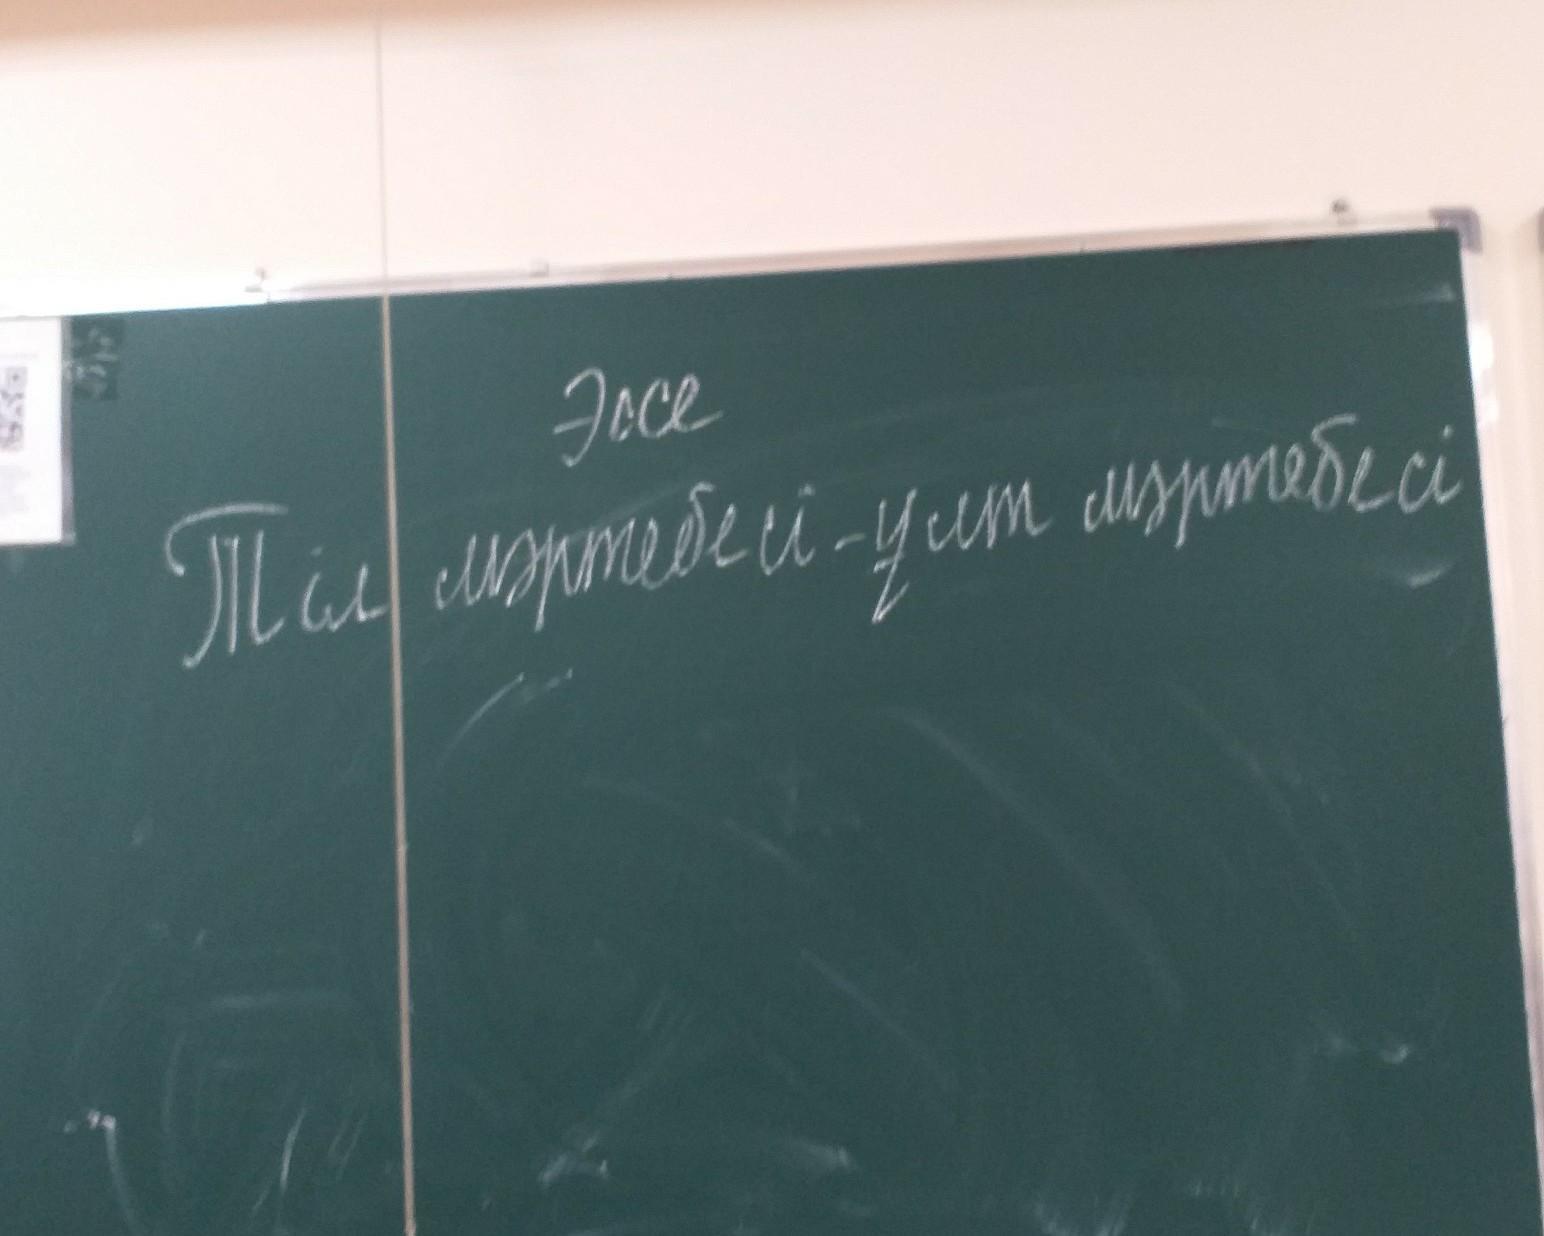 Эссе
Тіл мәртебесі - ұлт мәртебесі